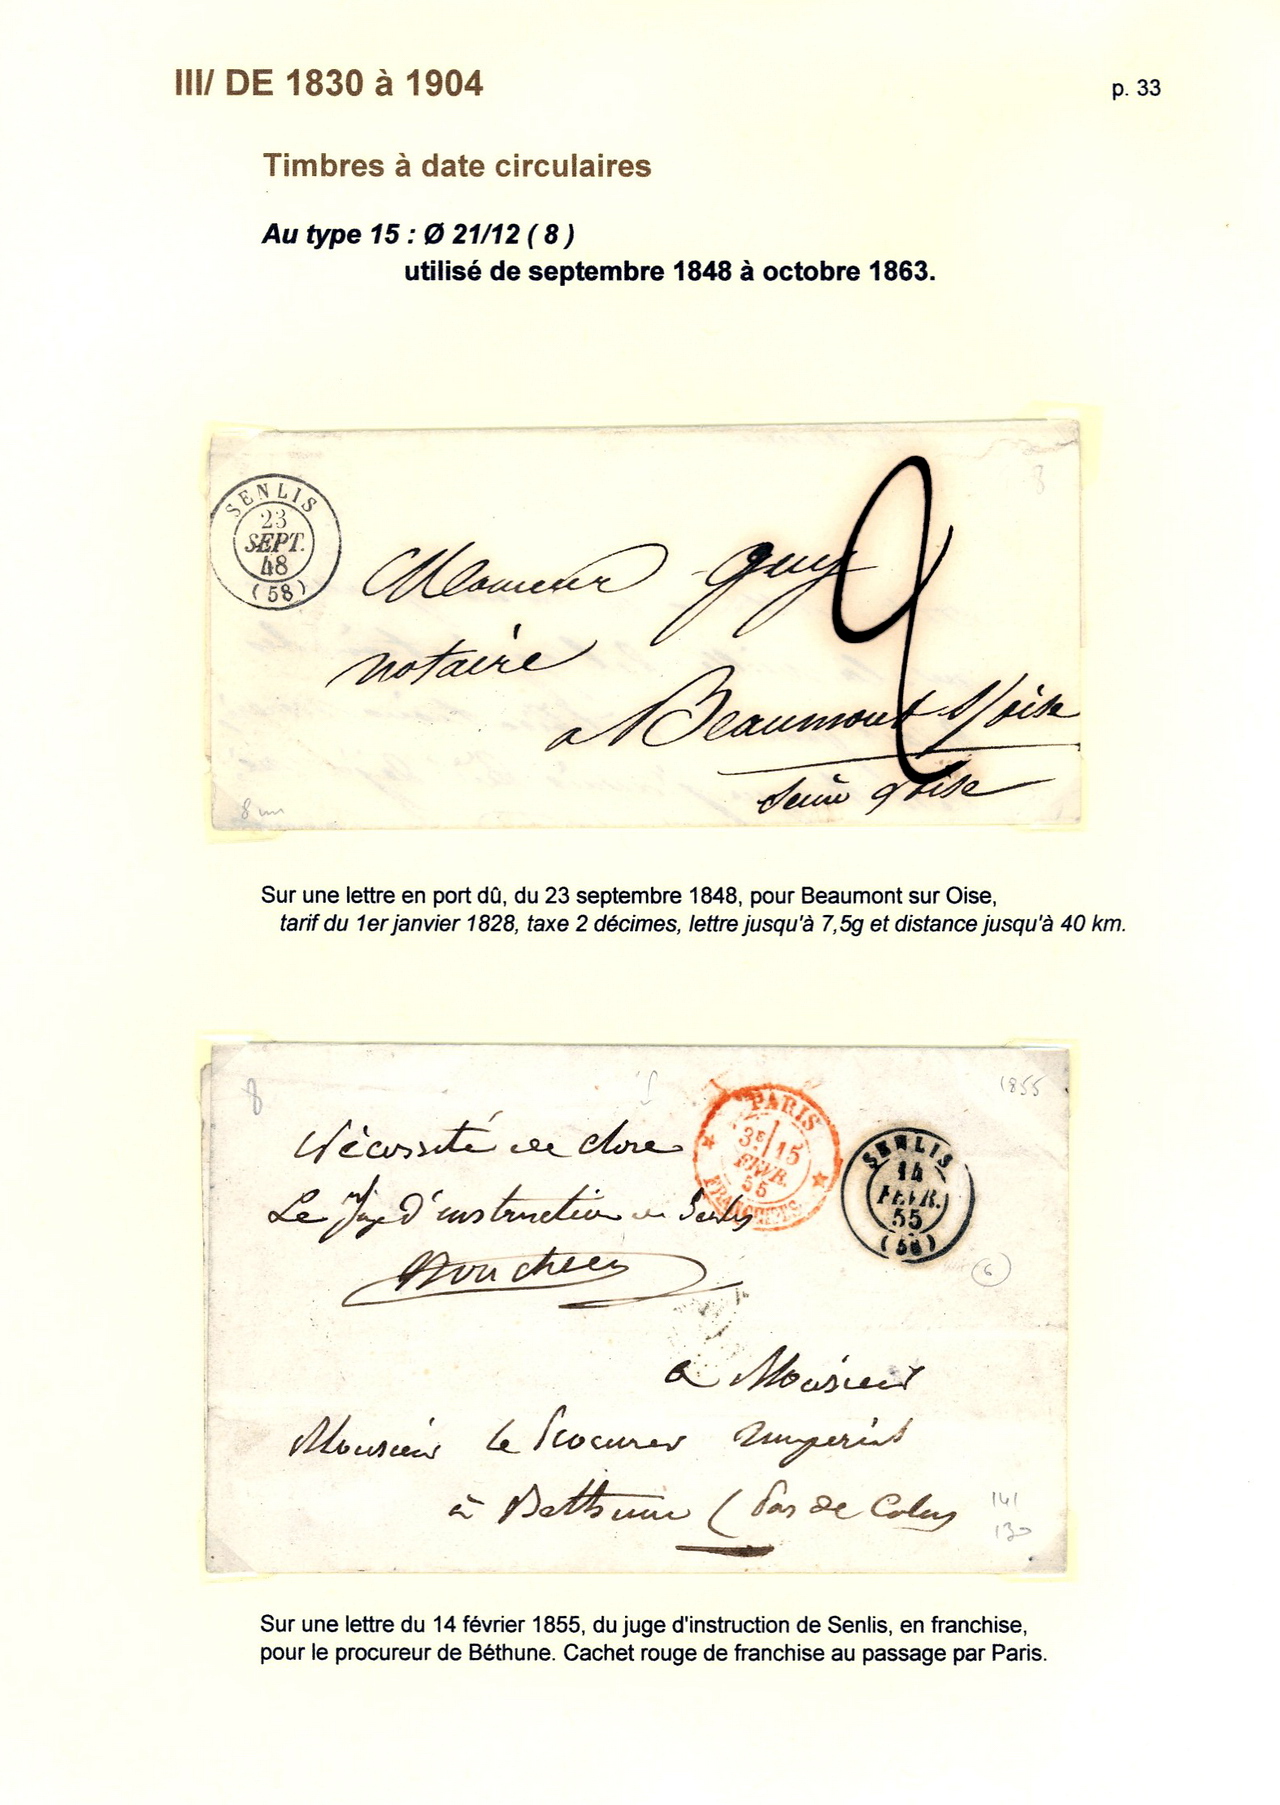 III/ DE 1830 à 1904
p. 33
Timbres à date circulaires
Au type 15 : Ø 21/12 ( 8 )
utilisé de septembre 1848 à octobre 1863.
8
SENLIS
23
SEPT.
48
(58)
Monsieur Guy
2
notaire
a Beaumont s/oise
Seine & oise
8 mm
Sur une lettre en port dû, du 23 septembre 1848, pour Beaumont sur Oise,
tarif du 1er janvier 1828, taxe 2 décimes, lettre jusqu'à 7,5g et distance jusqu'à 40 km.
8
1855
PARIS
3E 15
FEVR.
55
FRANCHISES
SENLIS
14
FEVR.
55
(58)
6
Nécessité de clore
Le Juge d'instruction de Senlis
a Monsieur
Monsieur le Procureur Imperial
à Bethune (Pas de Calais
141
130
Sur une lettre du 14 février 1855, du juge d'instruction de Senlis, en franchise,
pour le procureur de Béthune. Cachet rouge de franchise au passage par Paris.